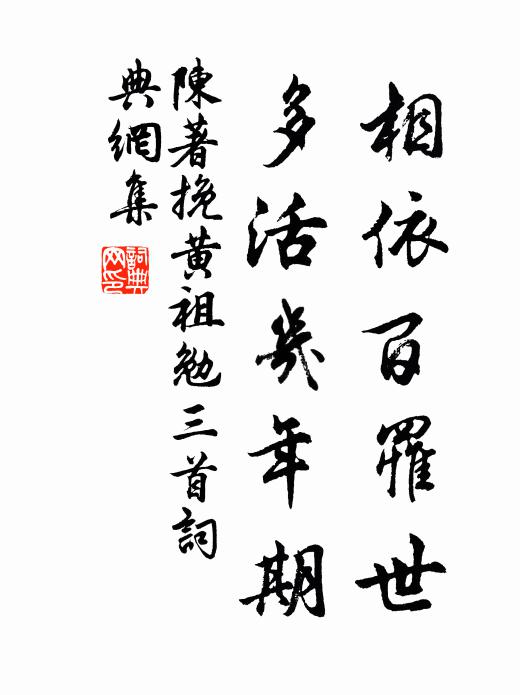 相依百罹世
多活幾年期
陳著挽黃祖勉三首詞
典網集
詞典
网印